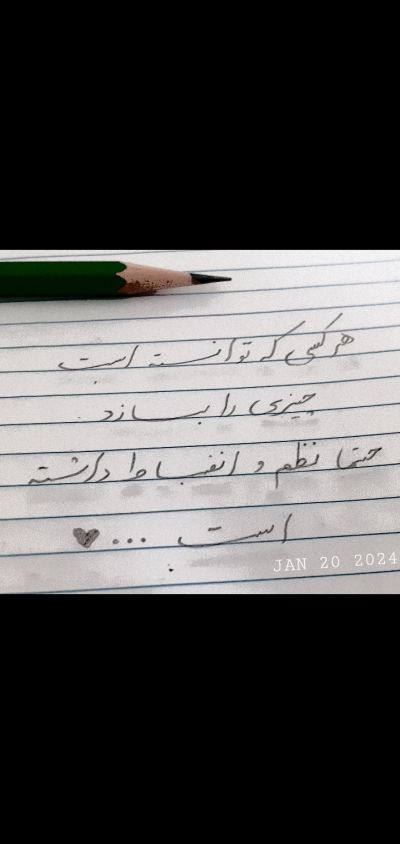 هر کسی که توانسته است
چیزی را بسازد
حتما نظم و انضباط داشته
است ...
JAN 20 2024